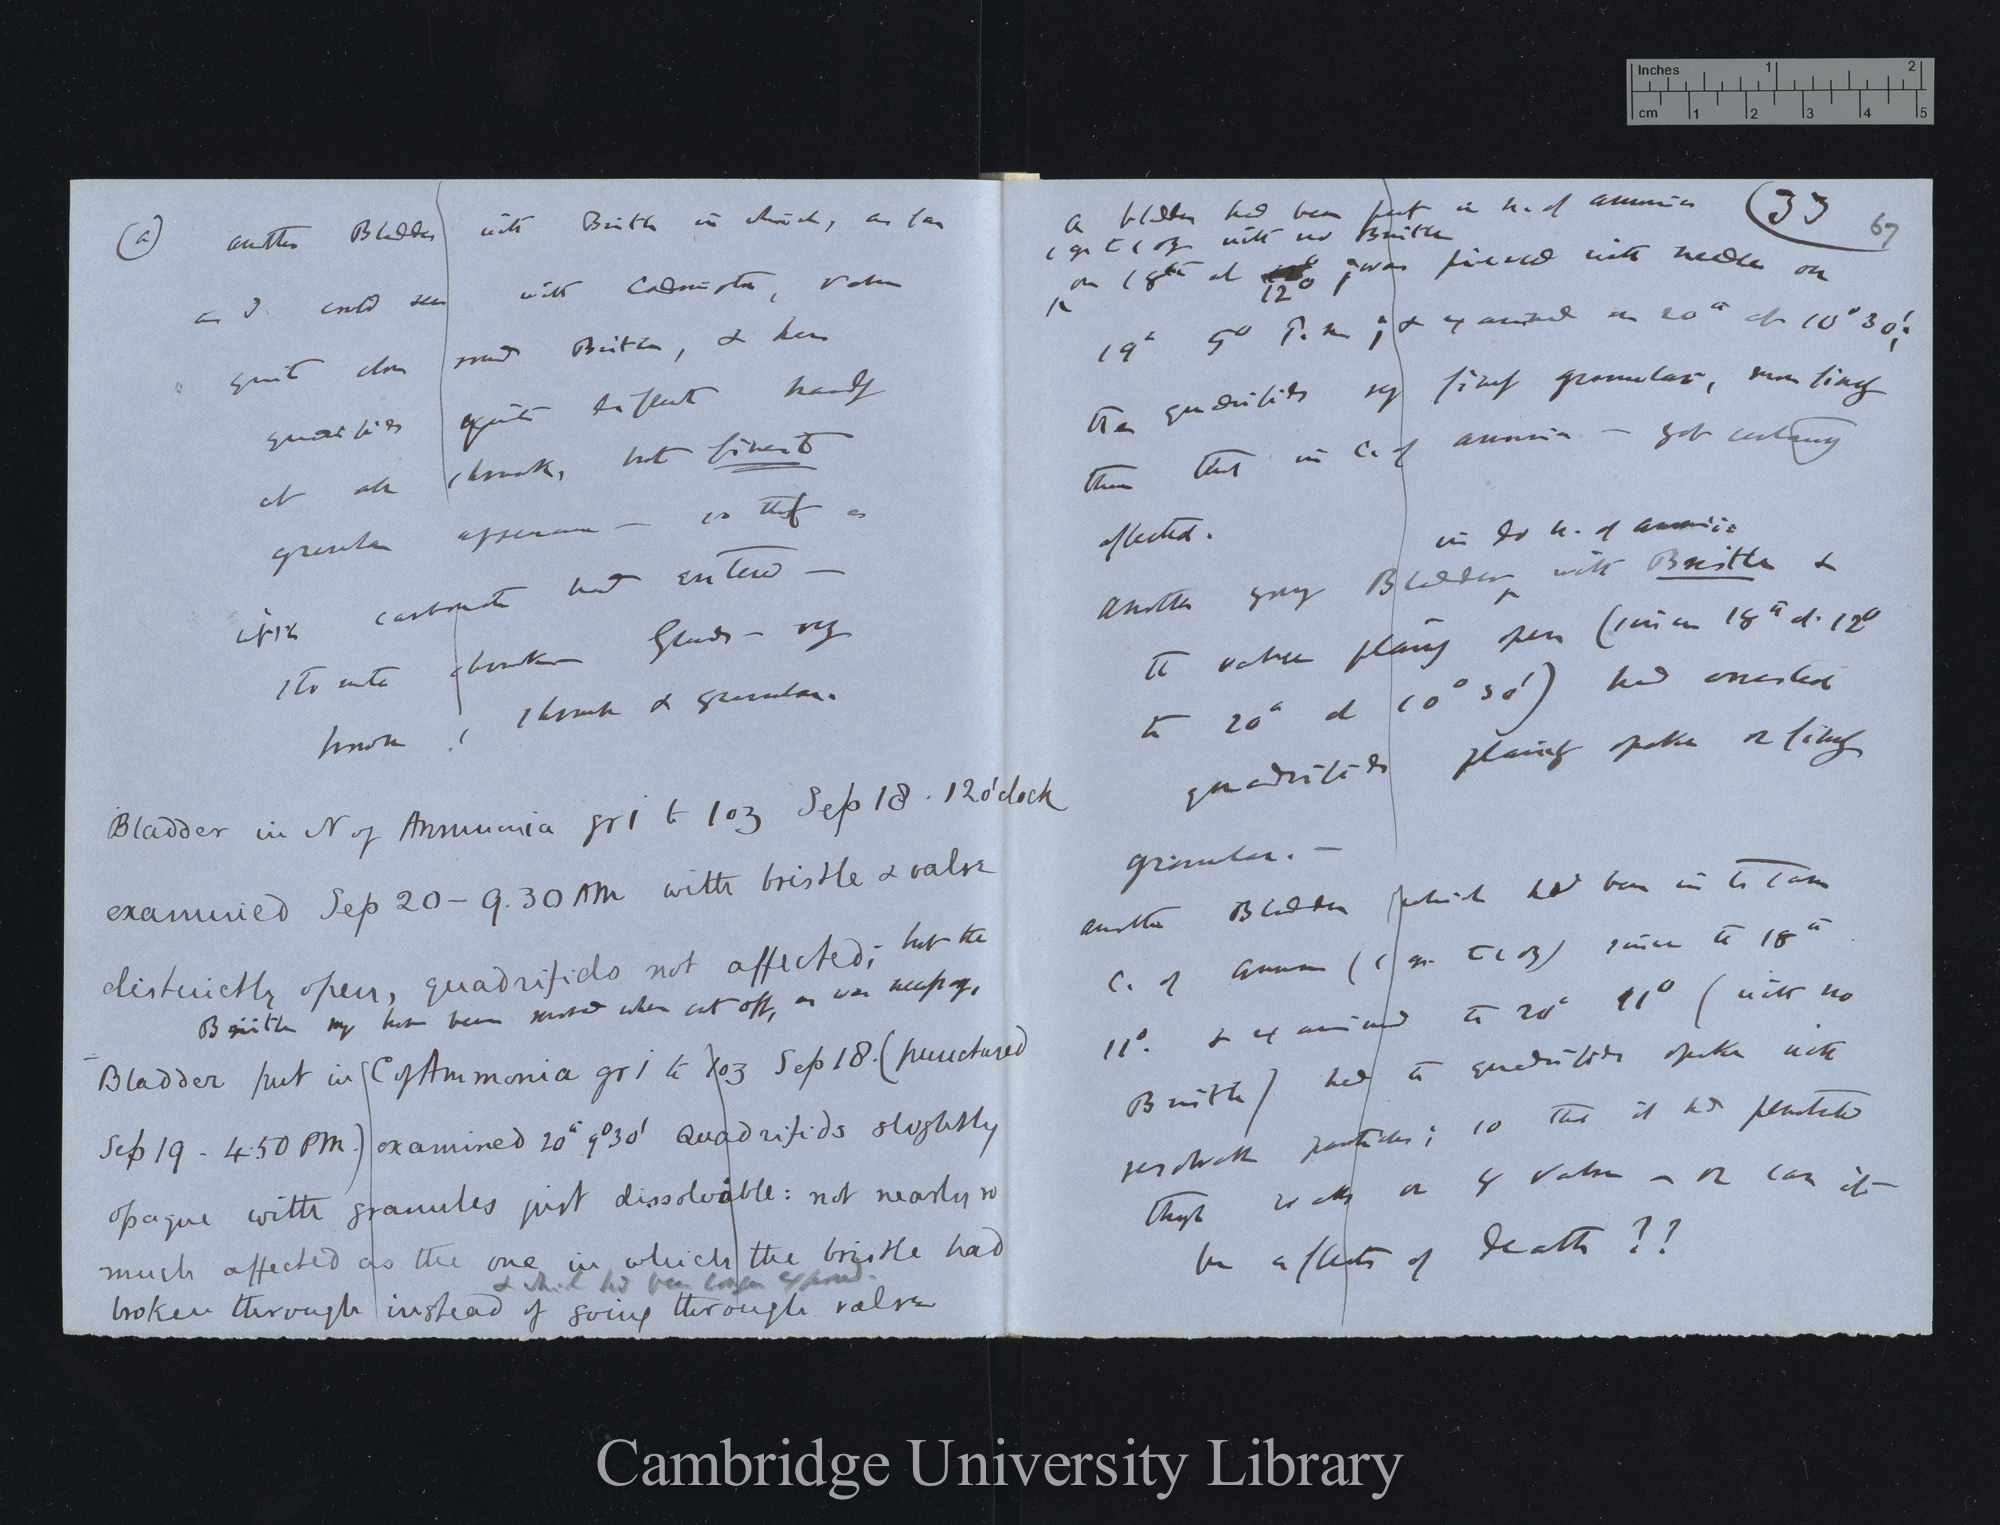 (a) another Bladder with Bristle in which, as far
as I could see with Coddington, valve
quite close round Bristle, & here
quadrifids quite different hardly
at all shrunk, but finest
granular appearance — so that a
carbonate had entered —
shrunk Glands — very
know! shrunk & granular.
Bladder in N of Ammonia gr 1 to 1 oz Sep 18. 12 o'clock
examined Sep 20 – 9.30 AM with bristle & valve
distinctly open, quadrifids not affected; but the
Bristle may have been moved when cut off, as was necessary,
Bladder put in C of Ammonia gr 1 to 1 oz Sep 18. (punctured
Sep 19 – 4.50 PM.) examined 20th 9° 30' Quadrifids slightly
opaque with granules just dissolvable: not nearly so
much affected as the one in which the bristle had
& which had been longer exposed.
broken through instead of going through valve
33
67
A bladder had been put in N. of ammonia
1 gr to 1 oz with no Bristle
on 18th at 12° ; was pierced with needle on
19th 5° P.m ; & examined on 20th at 10° 30';
the quadrifids very finely granular, more finely
than that in C. of ammonia — yet certainly
affected.
in do N. of ammonia
Another young Bladder with Bristle &
the valve plainly open (since 18th at 12°
to 20th at 10° 30') had
quadrifids plainly spotted or finely
granular. —
another Bladder which had been in the same
C. of ammon (1 gr. to 1 oz) since the 18th
11°. & examined the 20th 11° (with no
Bristle) had the quadrifids spotted with
particles; so that it had penetrated
through walls or by valve — or can it
be affects of death??
Inches 1 2
cm 1 2 3 4 5
Cambridge University Library